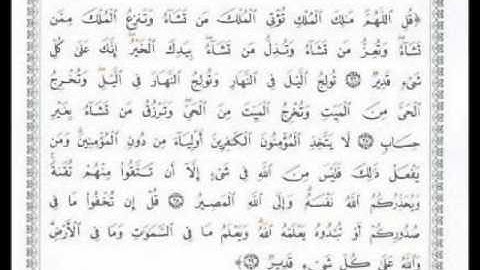 ﴿قُلِ ٱللَّهُمَّ مَٰلِكَ ٱلۡمُلۡكِ تُؤۡتِي ٱلۡمُلۡكَ مَن تَشَآءُ وَتَنزِعُ ٱلۡمُلۡكَ مِمَّن
تَشَآءُ وَتُعِزُّ مَن تَشَآءُ وَتُذِلُّ مَن تَشَآءُۖ بِيَدِكَ ٱلۡخَيۡرُۖ إِنَّكَ عَلَىٰ كُلِّ
شَيۡءٖ قَدِيرٞ ٢٦ تُولِجُ ٱلَّيۡلَ فِي ٱلنَّهَارِ وَتُولِجُ ٱلنَّهَارَ فِي ٱلَّيۡلِۖ وَتُخۡرِجُ
ٱلۡحَيَّ مِنَ ٱلۡمَيِّتِ وَتُخۡرِجُ ٱلۡمَيِّتَ مِنَ ٱلۡحَيِّۖ وَتَرۡزُقُ مَن تَشَآءُ بِغَيۡرِ
حِسَابٖ ٢٧ لَّا يَتَّخِذِ ٱلۡمُؤۡمِنُونَ ٱلۡكَٰفِرِينَ أَوۡلِيَآءَ مِن دُونِ ٱلۡمُؤۡمِنِينَۖ وَمَن
يَفۡعَلۡ ذَٰلِكَ فَلَيۡسَ مِنَ ٱللَّهِ فِي شَيۡءٍ إِلَّآ أَن تَتَّقُواْ مِنۡهُمۡ تُقَىٰةٗۗ
وَيُحَذِّرُكُمُ ٱللَّهُ نَفۡسَهُۥۗ وَإِلَى ٱللَّهِ ٱلۡمَصِيرُ ٢٨ قُلۡ إِن تُخۡفُواْ مَا فِي
صُدُورِكُمۡ أَوۡ تُبۡدُوهُ يَعۡلَمۡهُ ٱللَّهُۗ وَيَعۡلَمُ مَا فِي ٱلسَّمَٰوَٰتِ وَمَا فِي ٱلۡأَرۡضِۗ
وَٱللَّهُ عَلَىٰ كُلِّ شَيۡءٖ قَدِيرٞ ٢٩﴾